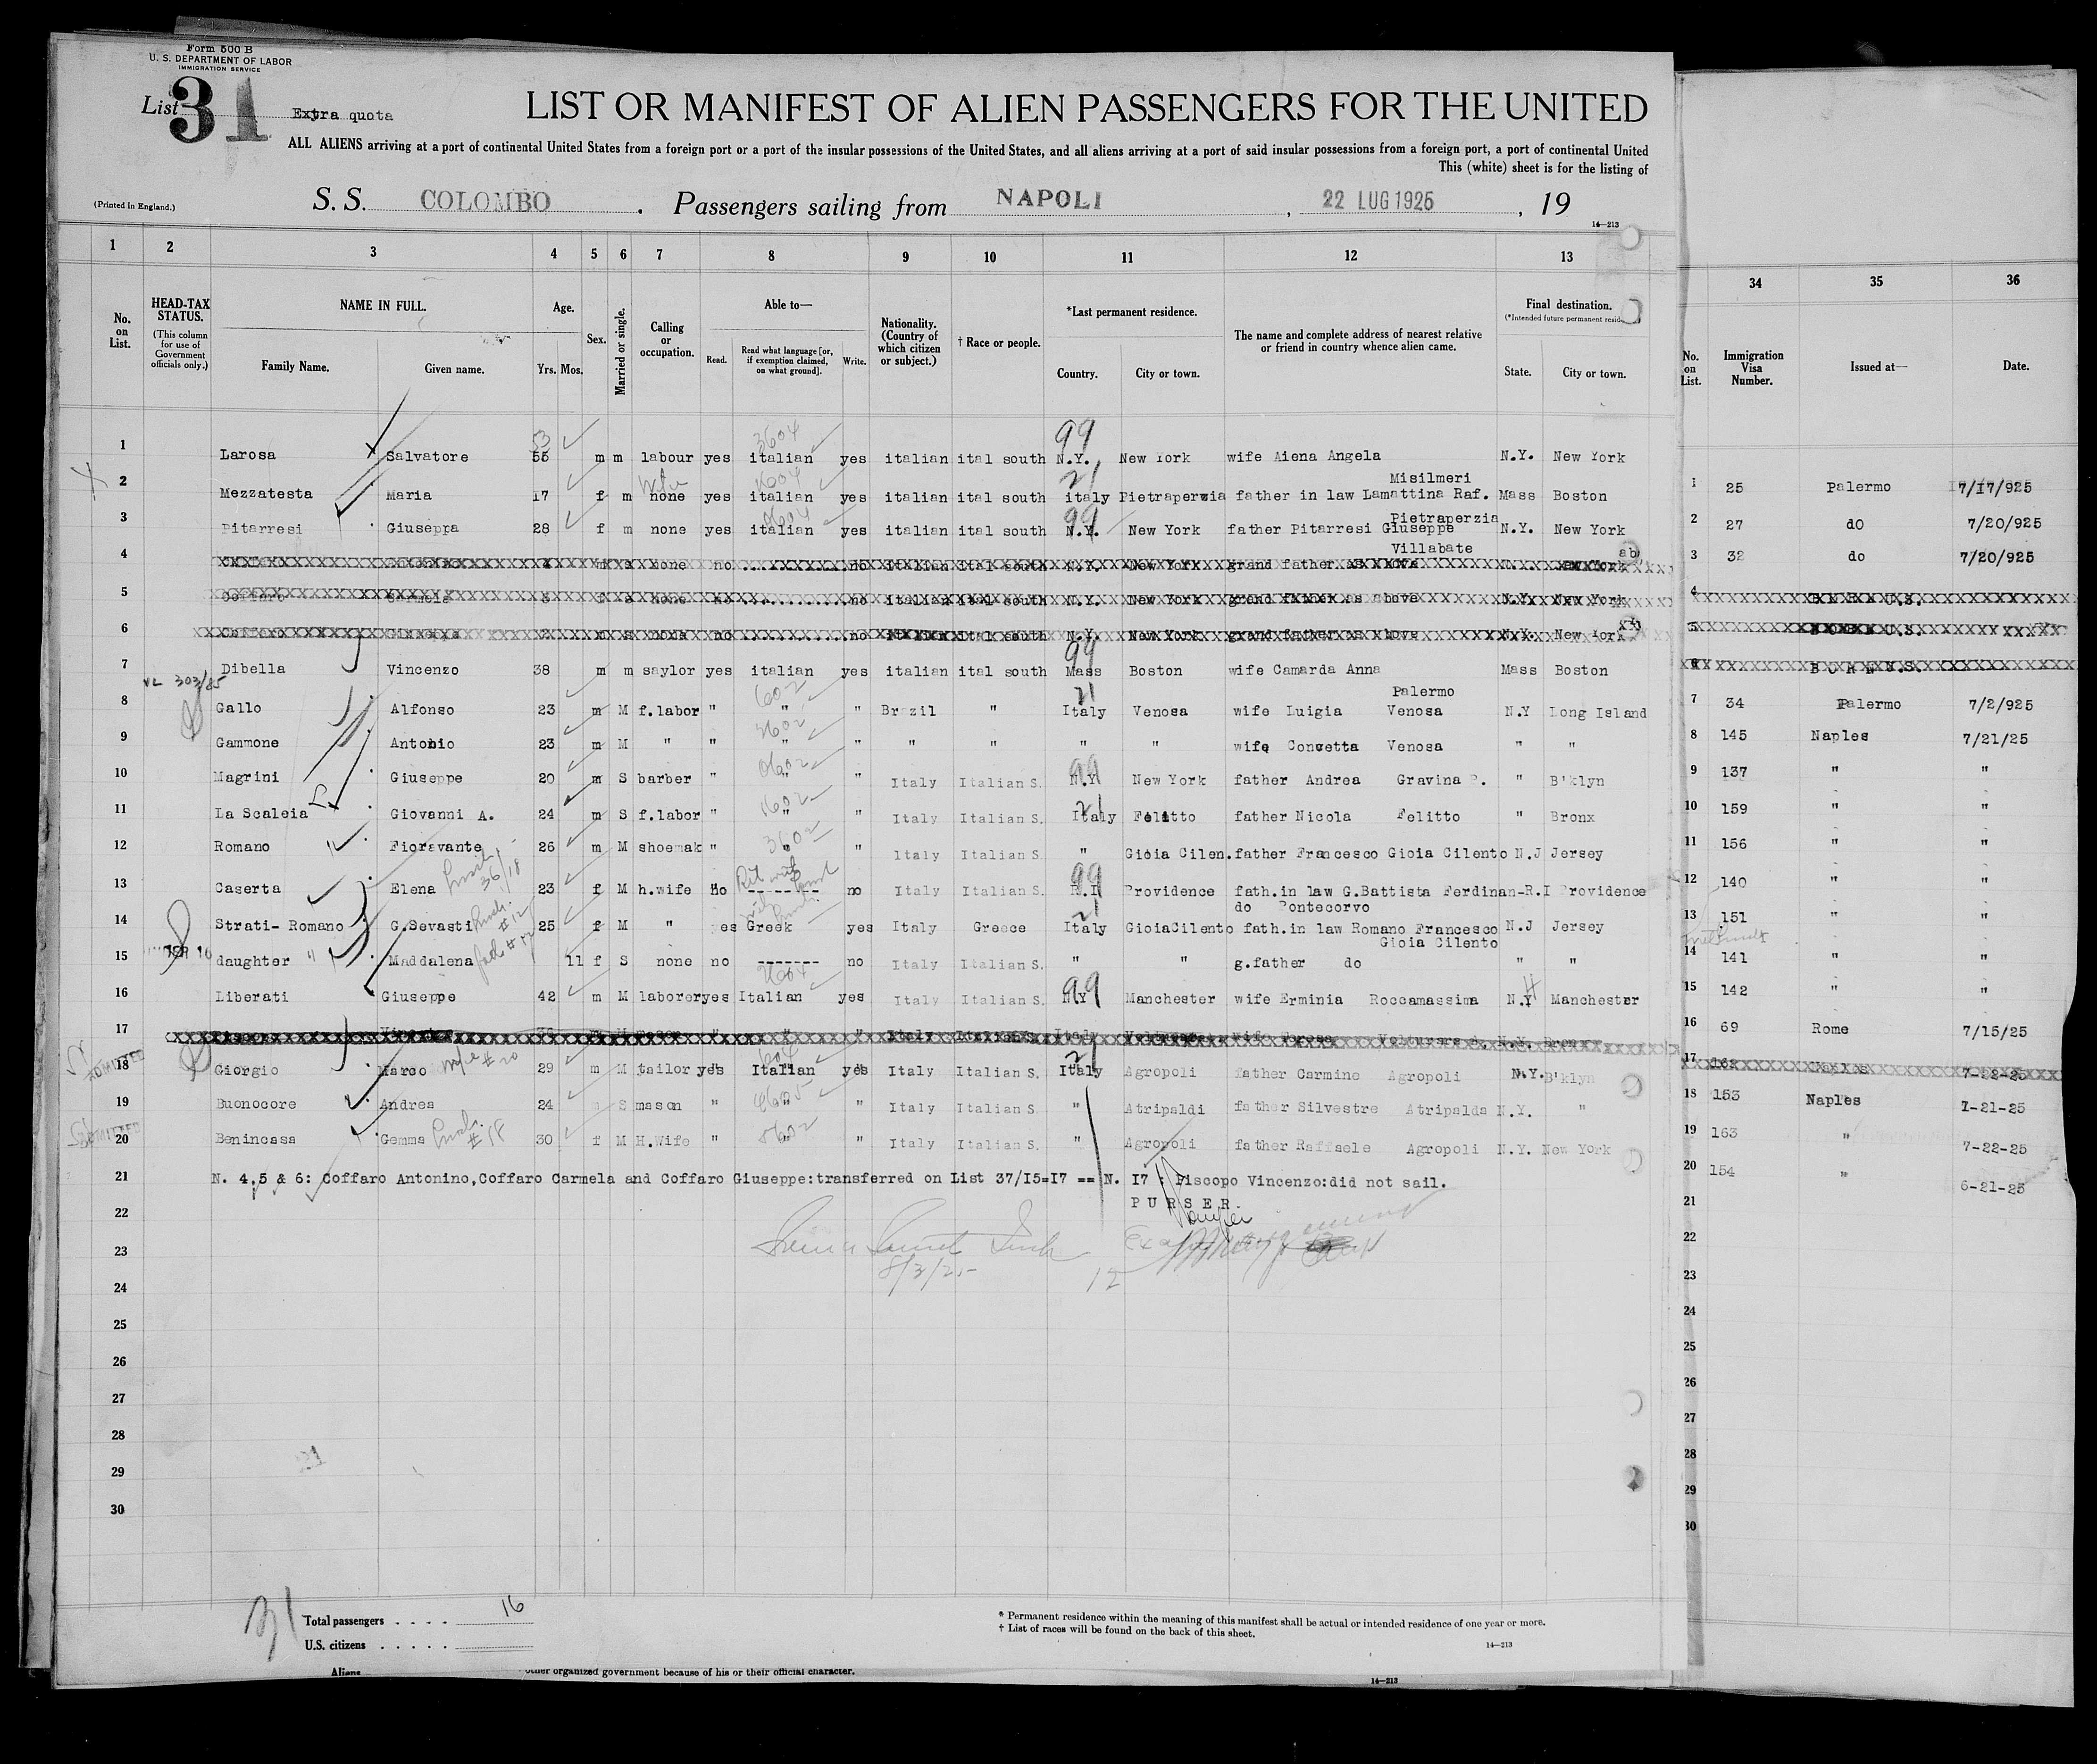 Form 500 B
U. S. DEPARTMENT OF LABOR
IMMIGRATION SERVICE
List 31 Extra quota
LIST OR MANIFEST OF ALIEN PASSENGERS FOR THE UNITED
ALL ALIENS arriving at a port of continental United States from a foreign port or a port of the insular possessions of the United States, and all aliens arriving at a port of said insular possessions from a foreign port, a port of continental United
This (white) sheet is for the listing of
(Printed in England.)
S. S. COLOMBO . Passengers sailing from NAPOLI , 22 LUG 1925 , 19
14—213
1 2 3 4 5 6 7 8 9 10 11 12 13 34 35 36
No. on List.
HEAD-TAX STATUS.
(This column for use of Government officials only.)
NAME IN FULL.
Family Name. Given name.
Age.
Yrs. Mos.
Sex.
Married or single.
Calling or occupation.
Able to—
Read. Read what language [or, if exemption claimed, on what ground]. Write.
Nationality. (Country of which citizen or subject.)
† Race or people.
*Last permanent residence.
Country. City or town.
The name and complete address of nearest relative or friend in country whence alien came.
Final destination.
(*Intended future permanent resid
State. City or town.
No. on List. Immigration Visa Number. Issued at— Date.
1 Larosa Salvatore 55 53 m m labour yes italian 3604 yes italian ital south N.Y. 99 New York wife Aiena Angela Misilmeri N.Y. New York
2 Mezzatesta Maria 17 f m none yes italian yes italian ital south italy 21 Pietraperzia father in law Lamattina Raf. Pietraperzia Mass Boston
3 Pitarresi Giuseppa 28 f m none yes italian yes italian ital south N.Y. 99 New York father Pitarresi Giuseppe Villabate N.Y. New York
4 none no no italian ital south N.Y. New York grand father as above New York
5 Coffaro Carmela f s none no no italian ital south N.Y. New York grand father as above N.Y. New York
6 Coffaro Giuseppe m s none no no ital south N.Y. New York grand father as above N.Y. New York
7 Dibella Vincenzo 38 m m saylor yes italian yes italian ital south Mass 99 Boston wife Camarda Anna Palermo Mass Boston
VL 303/85
8 Gallo Alfonso 23 m M f.labor " " " Brazil " Italy 21 Venosa wife Luigia Venosa N.Y Long Island
9 Gammone Antonio 23 m M " " " " " " " " wife Concetta Venosa " "
10 Magrini Giuseppe 20 m S barber " " " Italy Italian S. N.Y 99 New York father Andrea Gravina P. " B'klyn
11 La Scaleia Giovanni A. 24 m S f.labor " " " Italy Italian S. Italy 21 Felitto father Nicola Felitto " Bronx
12 Romano Fioravante 26 m M shoemak " " " Italy Italian S. " Gioia Cilen. father Francesco Gioia Cilento N.J Jersey
13 Caserta Elena 23 f M h.wife no -------- no Italy Italian S. R.I 99 Providence fath.in law G.Battista Ferdinan-R.I Providence
do Pontecorvo
14 Strati- Romano G.Sevasti 25 f M " yes Greek yes Italy Greece Italy 21 GioiaCilento fath.in law Romano Francesco N.J Jersey
Gioia Cilento
15 daughter " Maddalena 11 f S none no ------- no Italy Italian S. " " g.father do " "
16 Liberati Giuseppe 42 m M laborer yes Italian yes Italy Italian S. N.Y 99 Manchester wife Erminia Roccamassima N.Y H Manchester
17 m M " " " Italy Italian S. Italy wife Teresa Volturara N.Y. Bronx
ADMITTED
18 Giorgio Marco wife # 20 29 m M tailor yes Italian yes Italy Italian S. Italy 21 Agropoli father Carmine Agropoli N.Y. B'klyn
19 Buonocore Andrea 24 m S mason " " " Italy Italian S. " Atripaldi father Silvestre Atripalda N.Y. "
ADMITTED
20 Benincasa Gemma # 18 30 f M H.Wife " " " Italy Italian S. " Agropoli father Raffaele Agropoli N.Y. New York
21 N. 4,5 & 6: Coffaro Antonino,Coffaro Carmela and Coffaro Giuseppe:transferred on List 37/15=17 == N. 17 : Piscopo Vincenzo:did not sail.
PURSER.
22
23
8/3/25
24
25
26
27
28
29
30
1 25 Palermo 7/17/925
2 27 do 7/20/925
3 32 do 7/20/925
4 BORN U.S.
5 BORN U.S.
6 BORN U.S.
7 34 Palermo 7/2/925
8 145 Naples 7/21/25
9 137 " "
10 159 " "
11 156 " "
12 140 " "
13 151 " "
14 141 " "
15 142 " "
16 69 Rome 7/15/25
17 162 Naples 7-22-25
18 153 Naples 7-21-25
19 163 " 7-22-25
20 154 " 6-21-25
21
22
23
24
25
26
27
28
29
30
31
Total passengers . . . . 16
U.S. citizens . . . . .
Aliens
* Permanent residence within the meaning of this manifest shall be actual or intended residence of one year or more.
† List of races will be found on the back of this sheet.
14—213
other organized government because of his or their official character.
14—213